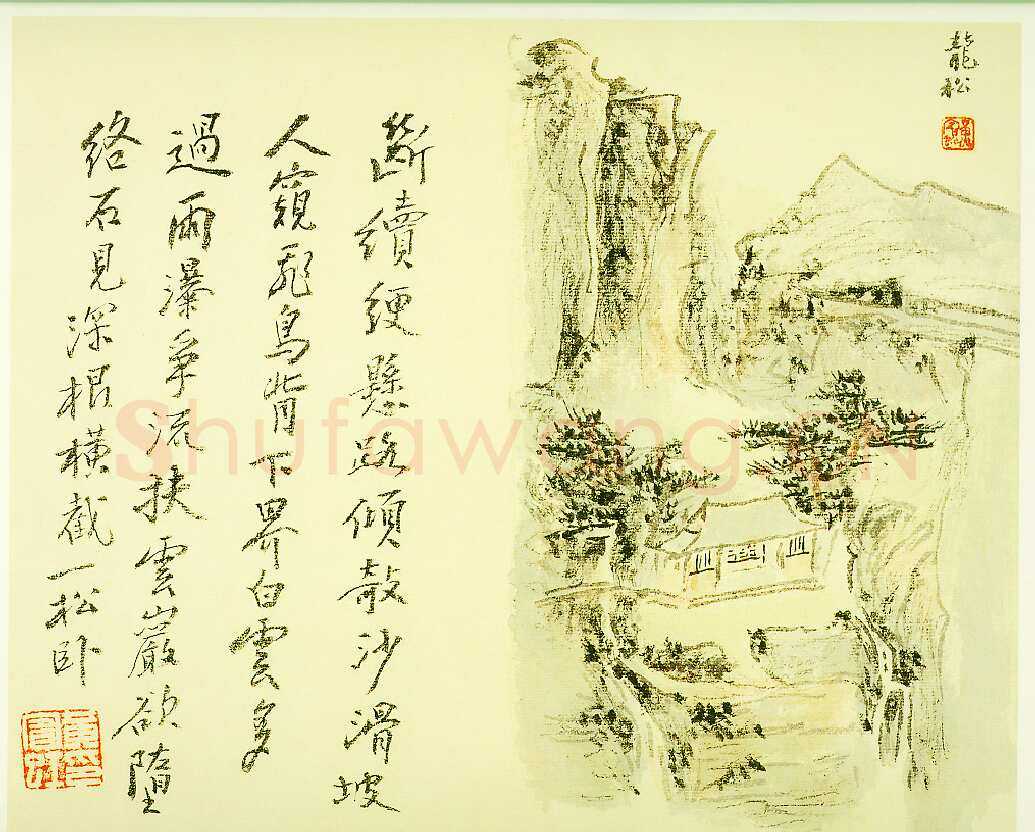 龍松
斷續綆懸路傾敧沙滑坡
人窺飛鳥背下界白雲多
過雨瀑爭流扶雲巖欲墮
絡石見深根橫截一松卧
黃賓虹印
Shufawang.CN